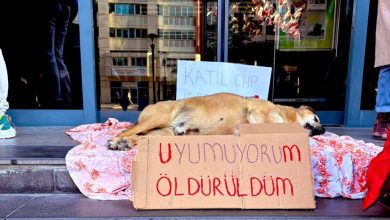 KATİL CHP
UYUMUYORUM
ÖLDÜRÜLDÜM